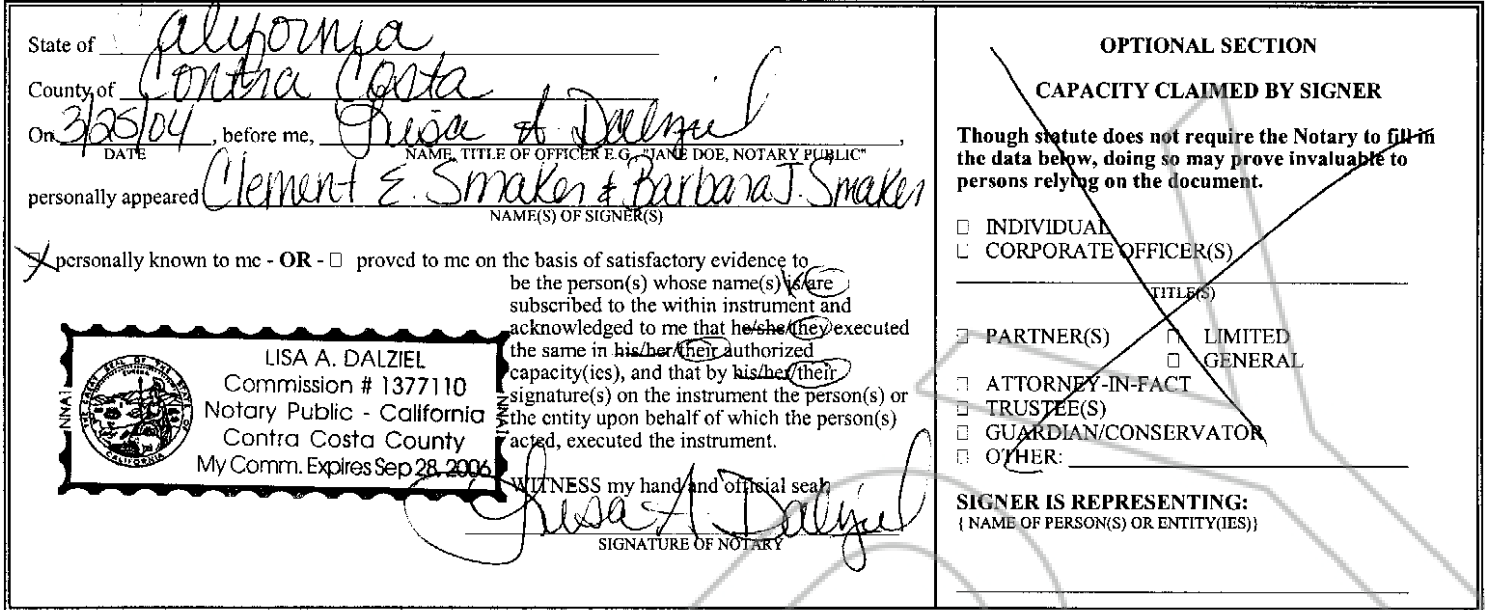 State of California
County of Contra Costa
On 3/25/04, before me, Lisa A Dalziel,
DATE NAME, TITLE OF OFFICER E.G., "JANE DOE, NOTARY PUBLIC"
personally appeared Clement E. Smaker & Barbara J. Smaker
NAME(S) OF SIGNER(S)
☒ personally known to me - OR - □ proved to me on the basis of satisfactory evidence to
be the person(s) whose name(s) is/are
subscribed to the within instrument and
acknowledged to me that he/she/they executed
the same in his/her/their authorized
capacity(ies), and that by his/her/their
signature(s) on the instrument the person(s) or
the entity upon behalf of which the person(s)
acted, executed the instrument.
LISA A. DALZIEL
Commission # 1377110
Notary Public - California
Contra Costa County
My Comm. Expires Sep 28, 2006
WITNESS my hand and official seal.
Lisa A Dalziel
SIGNATURE OF NOTARY
OPTIONAL SECTION
CAPACITY CLAIMED BY SIGNER
Though statute does not require the Notary to fill in
the data below, doing so may prove invaluable to
persons relying on the document.
□ INDIVIDUAL
□ CORPORATE OFFICER(S)
TITLE(S)
□ PARTNER(S) □ LIMITED
□ GENERAL
□ ATTORNEY-IN-FACT
□ TRUSTEE(S)
□ GUARDIAN/CONSERVATOR
□ OTHER:
SIGNER IS REPRESENTING:
{ NAME OF PERSON(S) OR ENTITY(IES)}